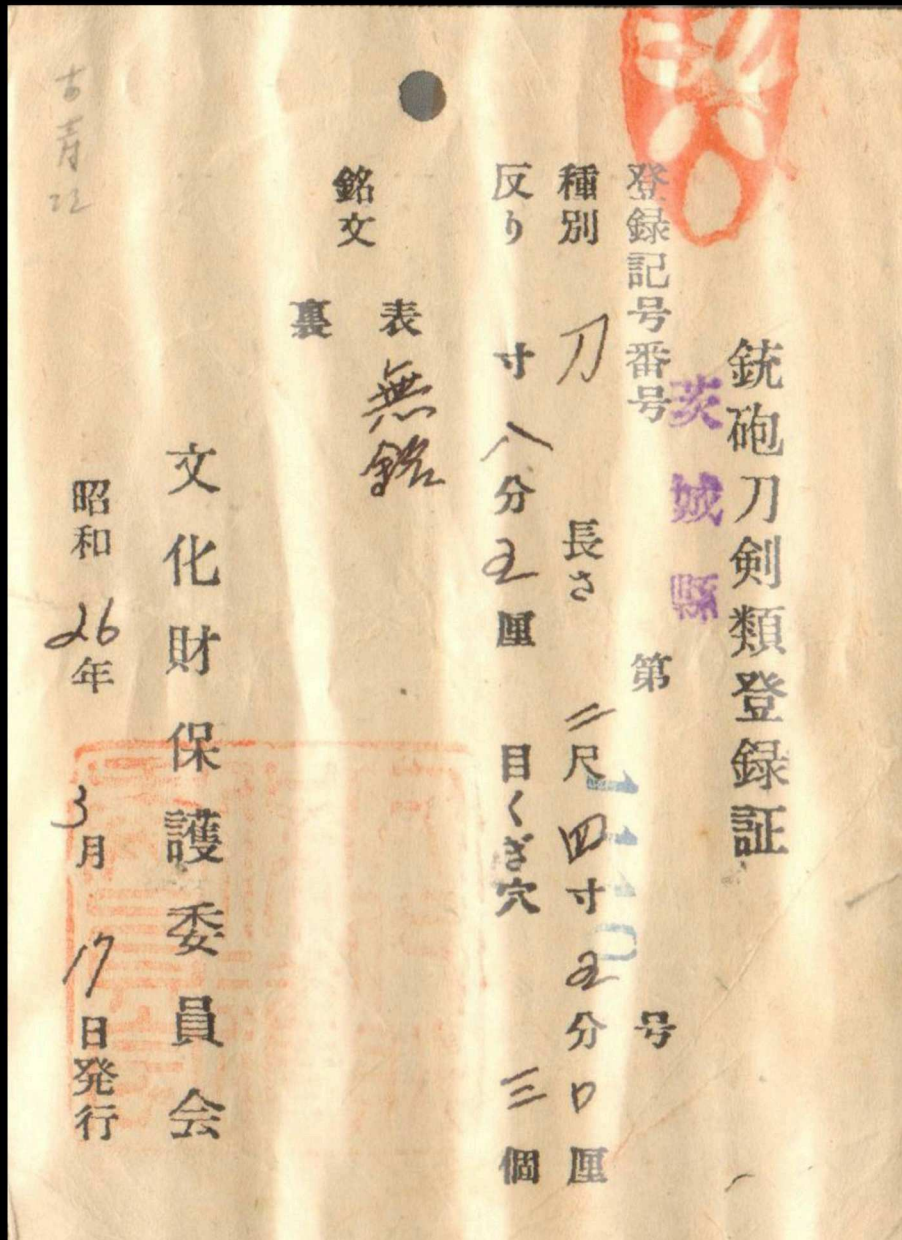 銃砲刀剣類登録証
茨城縣
登録記号番号 第 号
種別 刀 長さ 二尺四寸五分口厘
反り 寸八分五厘 目くぎ穴 三個
銘文
表 無銘
裏
文化財保護委員会
昭和26年3月17日発行